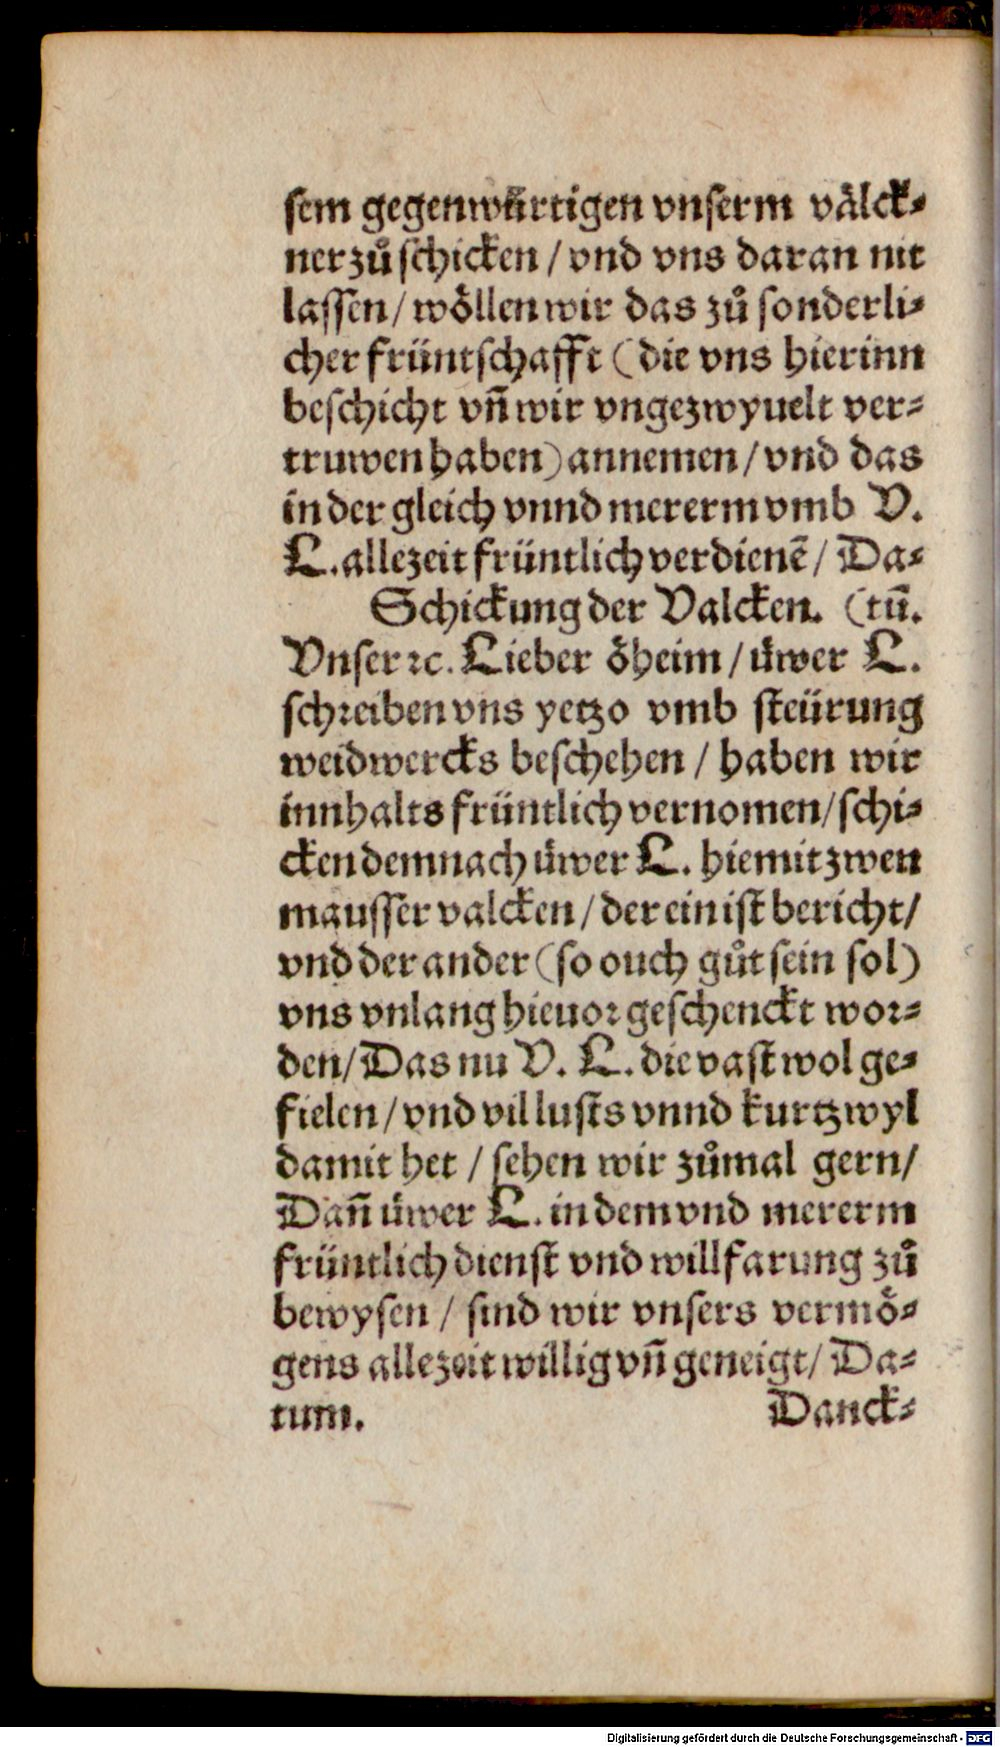 sem gegenwürtigen vnserm välck⸗
ner zů schicken / vnd vns daran nit
lassen / wöllen wir das zů sonderli⸗
cher früntschafft (die vns hierinn
beschicht vñ wir vngezwyuelt ver⸗
truwen haben) annemen / vnd das
in der gleich vnnd mererm vmb V.
L. allezeit früntlich verdienē / Da⸗
Schickung der Valcken. (tū.
Vnser ꝛc. Lieber öheim / üwer L.
schreiben vns yetzo vmb steürung
weidwercks beschehen / haben wir
innhalts früntlich vernomen / schi⸗
cken demnach üwer L. hiemit zwen
mausser valcken / der ein ist bericht /
vnd der ander (so ouch gůt sein sol)
vns vnlang hieuor geschenckt wor⸗
den / Das nu V. L. die vast wol ge⸗
fielen / vnd vil lusts vnnd kurtzwyl
damit het / sehen wir zůmal gern /
Dañ üwer L. in dem vnd mererm
früntlich dienst vnd willfarung zů
bewysen / sind wir vnsers vermö⸗
gens allezeit willig vñ geneigt / Da⸗
tum. Danck⸗
Digitalisierung gefördert durch die Deutsche Forschungsgemeinschaft - DFG